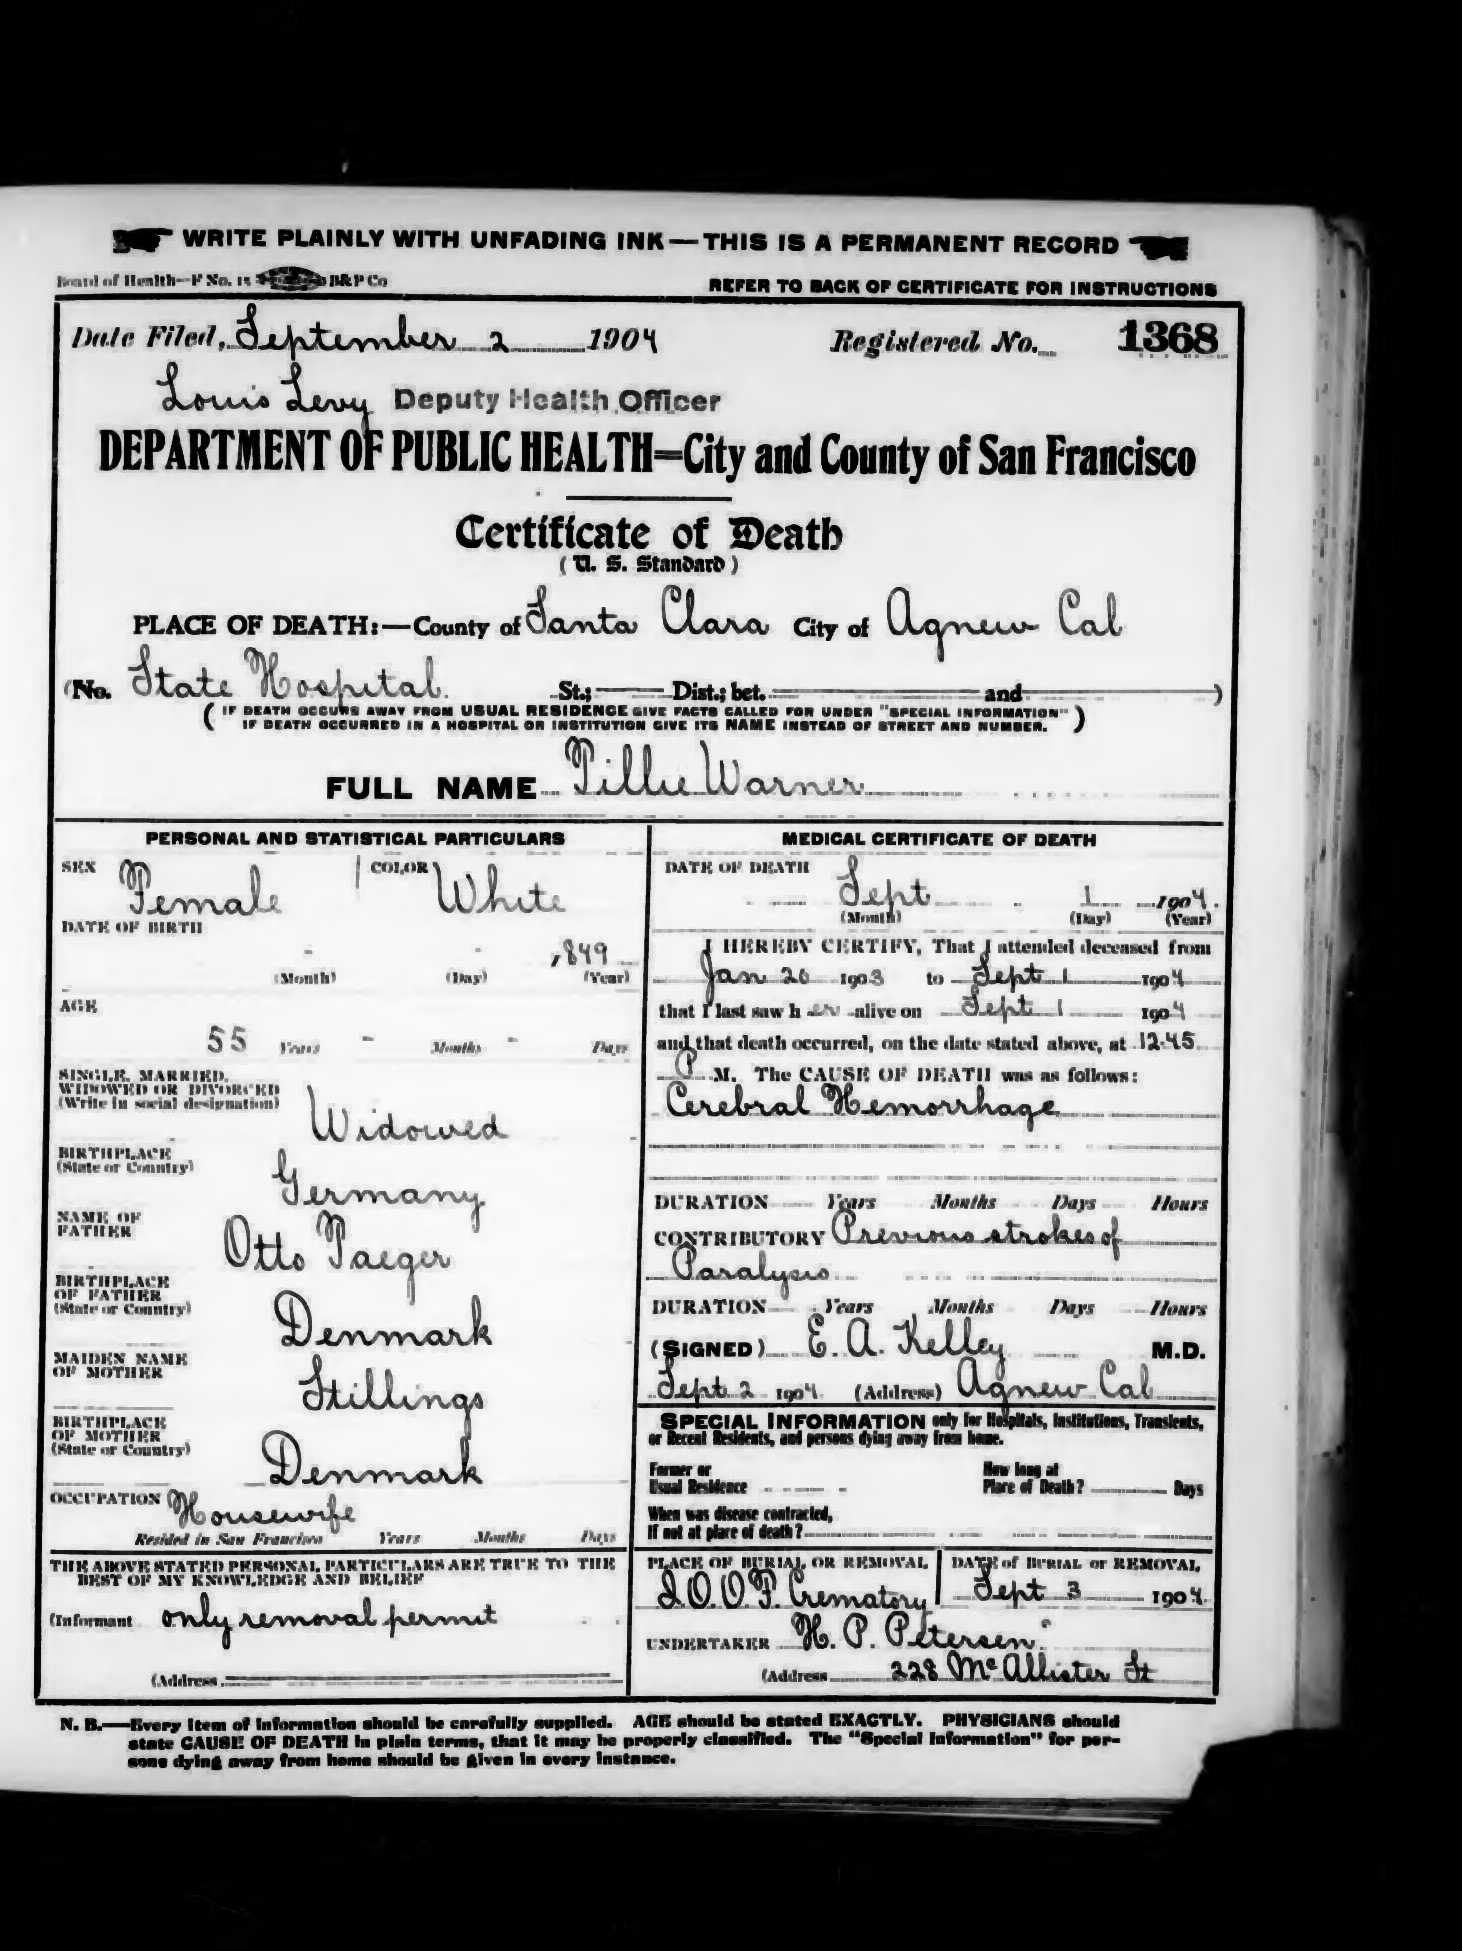 WRITE PLAINLY WITH UNFADING INK—THIS IS A PERMANENT RECORD
Board of Health—F No. 15 B&P Co
REFER TO BACK OF CERTIFICATE FOR INSTRUCTIONS
Date Filed, September 2 1904 Registered No. 1368
Louis Levy Deputy Health Officer
DEPARTMENT OF PUBLIC HEALTH=City and County of San Francisco
Certificate of Death
(U. S. Standard)
PLACE OF DEATH:—County of Santa Clara City of Agnew Cal
(No. State Hospital. St.; Dist.; bet. and )
(IF DEATH OCCURS AWAY FROM USUAL RESIDENCE GIVE FACTS CALLED FOR UNDER "SPECIAL INFORMATION"
IF DEATH OCCURRED IN A HOSPITAL OR INSTITUTION GIVE ITS NAME INSTEAD OF STREET AND NUMBER.)
FULL NAME Tillie Warner
PERSONAL AND STATISTICAL PARTICULARS
SEX Female COLOR White
DATE OF BIRTH
- - 1849
(Month) (Day) (Year)
AGE
55 Years - Months - Days
SINGLE, MARRIED,
WIDOWED OR DIVORCED
(Write in social designation)
Widowed
BIRTHPLACE
(State or Country)
Germany
NAME OF
FATHER
Otto Paeger
BIRTHPLACE
OF FATHER
(State or Country)
Denmark
MAIDEN NAME
OF MOTHER
Stillings
BIRTHPLACE
OF MOTHER
(State or Country)
Denmark
OCCUPATION Housewife
Resided in San Francisco Years Months Days
THE ABOVE STATED PERSONAL PARTICULARS ARE TRUE TO THE
BEST OF MY KNOWLEDGE AND BELIEF
(Informant only removal permit
(Address
MEDICAL CERTIFICATE OF DEATH
DATE OF DEATH
Sept 1 1904.
(Month) (Day) (Year)
I HEREBY CERTIFY, That I attended deceased from
Jan 26 1903 to Sept 1 1904
that I last saw her alive on Sept 1 1904
and that death occurred, on the date stated above, at 12.45
P M. The CAUSE OF DEATH was as follows:
Cerebral Hemorrhage
DURATION Years Months Days Hours
CONTRIBUTORY Previous strokes of
Paralysis
DURATION Years Months Days Hours
(SIGNED) E. A. Kelley M.D.
Sept 2 1904 (Address) Agnew Cal
SPECIAL INFORMATION only for Hospitals, Institutions, Transients,
or Recent Residents, and persons dying away from home.
Former or
Usual Residence
How long at
Place of Death? Days
When was disease contracted,
If not at place of death?
PLACE OF BURIAL OR REMOVAL
I.O.O.F. Crematory
DATE of BURIAL or REMOVAL
Sept 3 1904.
UNDERTAKER H. P. Petersen
(Address 228 McAllister St
N. B.—Every item of information should be carefully supplied. AGE should be stated EXACTLY. PHYSICIANS should
state CAUSE OF DEATH in plain terms, that it may be properly classified. The "Special Information" for per-
sons dying away from home should be given in every instance.